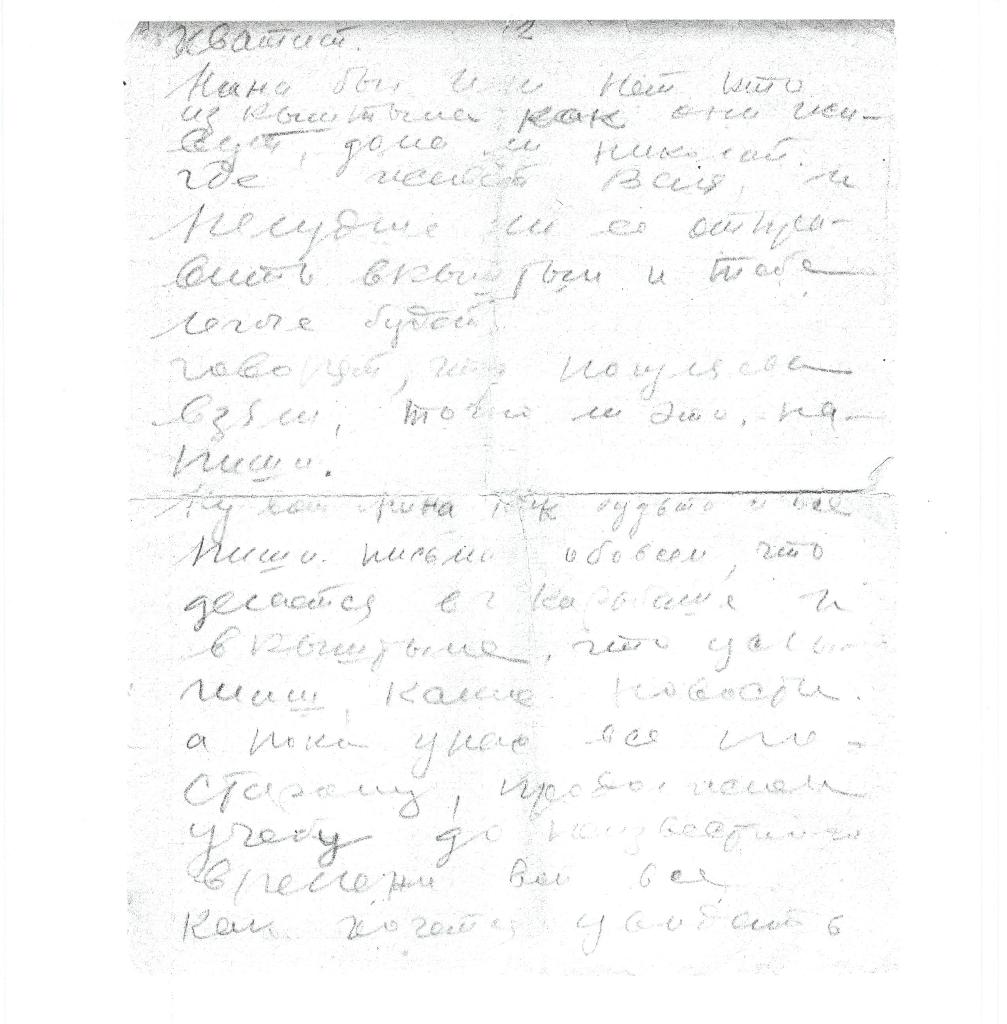 хватит. 2
Нина был или нет кто
из кыштыма как они жи-
вут, дома ли николай.
где живет Валя, и
нелудше ли ее отпра-
вить вкыштым и тебе
легче будет.
говорят, что
взяли, точно ли это, на-
пиши.
Ну вот нина как будьто и все
пиши письма обовсем, что
делается в Карабаше и
в кыштыме, что услы-
шиш, какие новости.
а пока унас все по-
старому, продолжаем
учебу до неизвестного
времени вот все
как хочется увидать